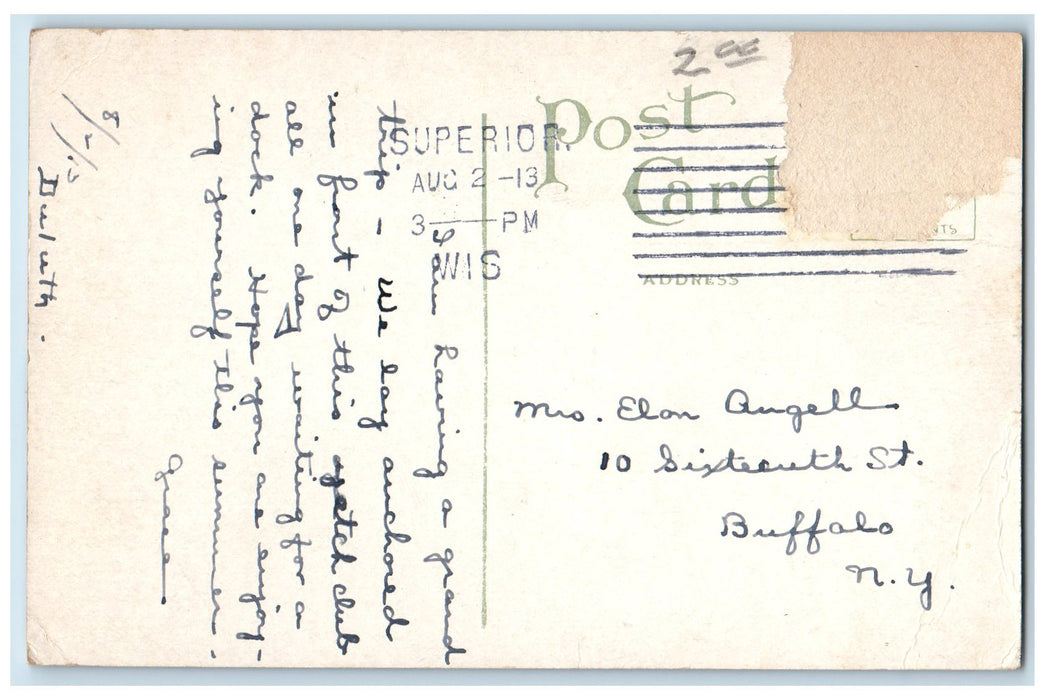 2 00
Post
Card
SUPERIOR.
AUG 2 -13
3 PM
WIS
NTS
ADDRESS
8/2/13
Duluth.
I am having a grand
trip - We lay anchored
in front of this yatch club
all one day waiting for a
dock. Hope you are enjoy-
ing yourself this summer.
Grace
Mrs. Elon Angell
10 Sixteenth St.
Buffalo
N.Y.